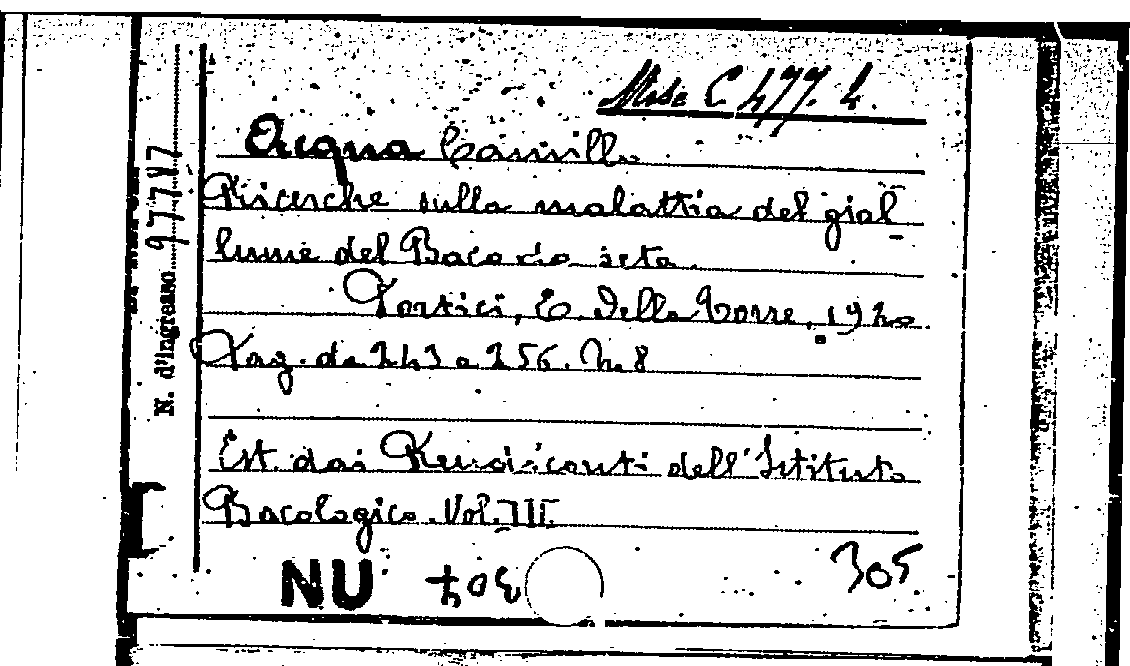 Misc C 477. 4.
Acqua Camillo
Ricerche sulla malattia del gial
lume del Baco da seta.
Portici, E. Della Torre, 1920.
Pag. da 243 a 256. In. 8
Est. dai Rendiconti dell'Istituto
Bacologico. Vol. III.
NU 304
305
N. d'ingresso 97747